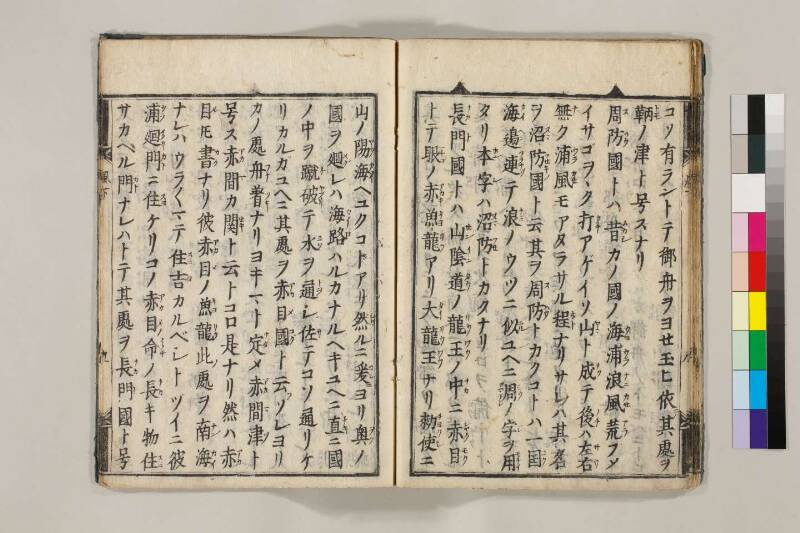 コソ有ラントテ御舟ヲヨセ玉ヒ依其處ヲ
鞆ノ津ト号スナリ
周防國トハ昔カノ國ノ海浦浪風荒フメ
イサコヲヽク打アゲイソ山ト成テ後ハ左右
無ク浦風モアタラサル程ナリサレハ其畧
ヲ沼防國ト云其ヲ周防トカクコトハ一国
海邉連テ浪ノウツニ似ユヘニ凋ノ字ヲ用
タリ本字ハ沼防トカクナリ
長門國トハ山陰道ノ龍王ノ中ニ赤目
トテ眼ノ赤魚龍アリ大龍王ナリ勅使ニ
山ノ陽海ヘユクコトアリ然ルニ爰ヨリ奥ノ
國ヲ廻レハ海路ハルカナルヘキユヘニ直ニ國
ノ中ヲ蹴破テ水ヲ通シ佐ニテコソ通リケ
リカルガユヘニ其處ヲ赤目國ト云ソレヨリ
カノ處舟着ナリヨキマト定メ赤間津ト
号ス赤間カ関ト云トコロ是ナリ然ハ赤
目モ書ナリ彼赤目ノ魚龍此處ヲ南海
ナレハウラクマテ住吉カルベシトツイニ彼
浦廻門ニ住ケリコノ赤目命ノ長キ物住
サカヘル門ナレハトテ其處ヲ長門國ト号